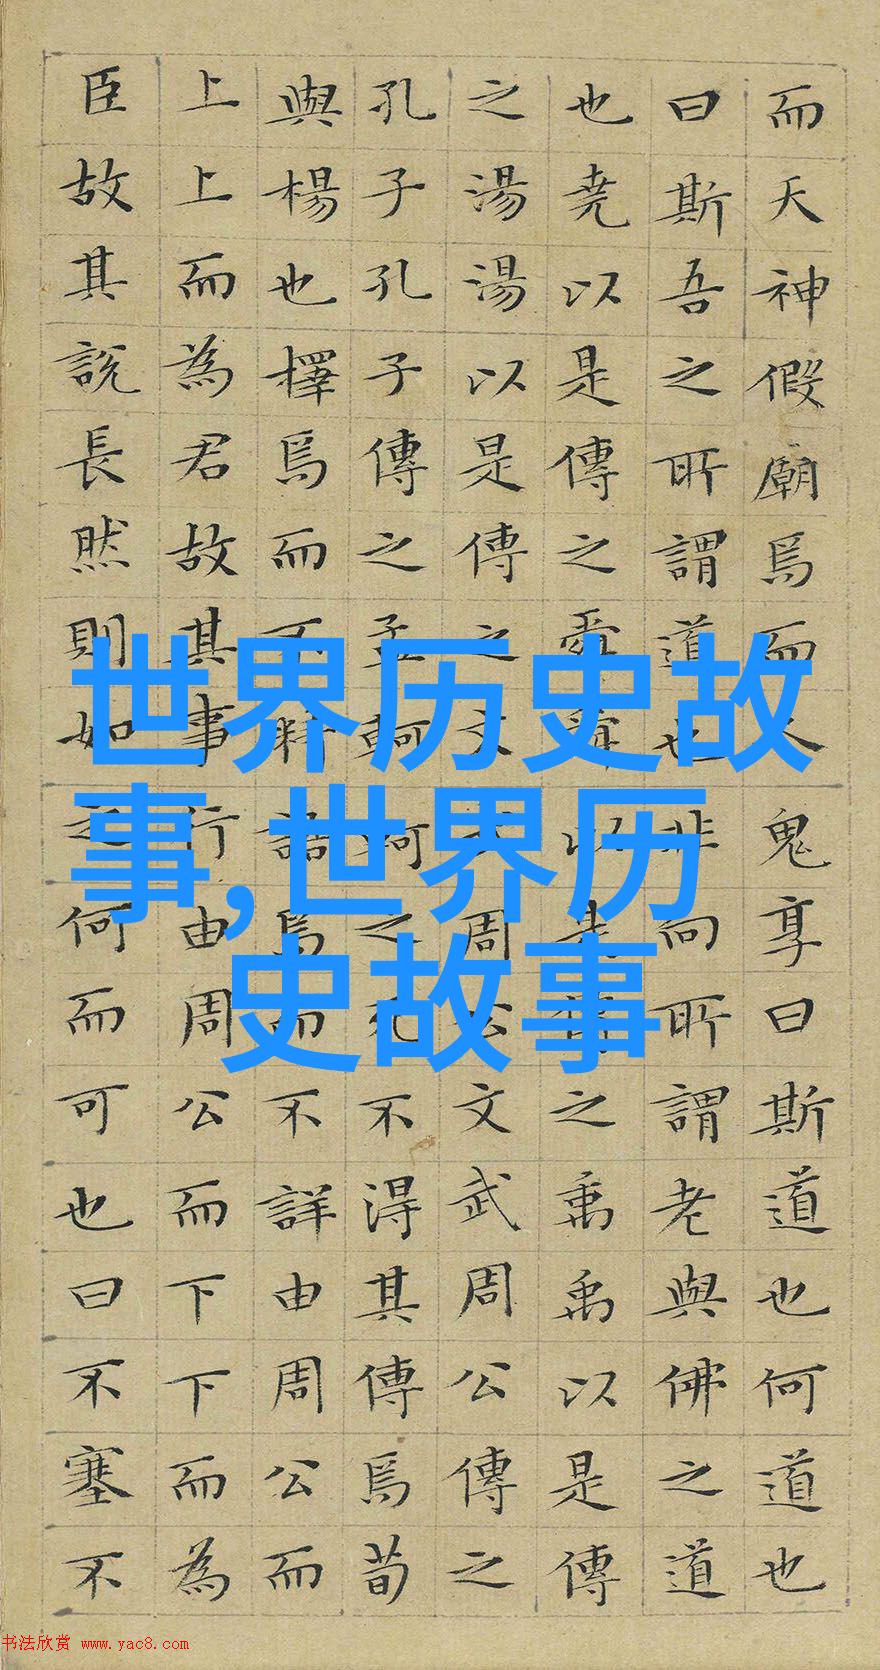 而天神假廟焉而人鬼享曰斯道也何道也
曰斯吾之所謂道也非向所謂老與佛之道
也堯以是傳之舜舜以是傳之禹禹以是傳
之湯湯以是傳之文武周公文武周公傳之
孔子孔子傳之孟軻軻之死不得其傳焉荀
與楊也擇焉而不精語焉而不詳由周公而
上上而為君故其事行由周公而下下而為
臣故其說長然則如之何而可也曰不塞不
世界历史故
事,世界历
史故事
书法欣赏 www.yac8.com